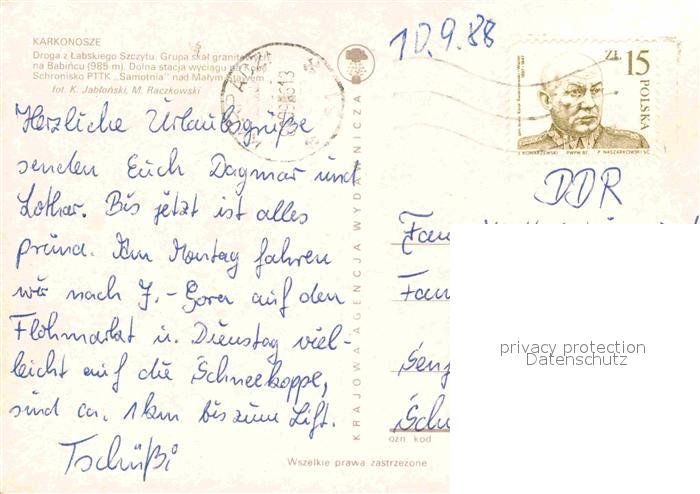 KARKONOSZE
Droga z Łabskiego Szczytu. Grupa skał granitowych
na Babińcu (985 m). Dolna stacja wyciągu na Kopę
Schronisko PTTK „Samotnia" nad Małym Stawem
fot. K. Jabłoński, M. Raczkowski
10.9.88
ZŁ 15
POLSKA
J. KONARZEWSKI PWPW 87. P. NASZARKOWSKI SC.
Herzliche Urlaubsgrüße
senden Euch Dagmar und
Lothar. Bis jetzt ist alles
prima. Am Montag fahren
wir nach J.-Gora auf den
Flohmarkt u. Dienstag viel-
leicht auf die Schneekoppe,
sind ca. 1 km bis zum Lift.
Tschüßi
KRAJOWA AGENCJA WYDAWNICZA
DDR
Fam
privacy protection
Datenschutz
ozn kod
Wszelkie prawa zastrzeżone